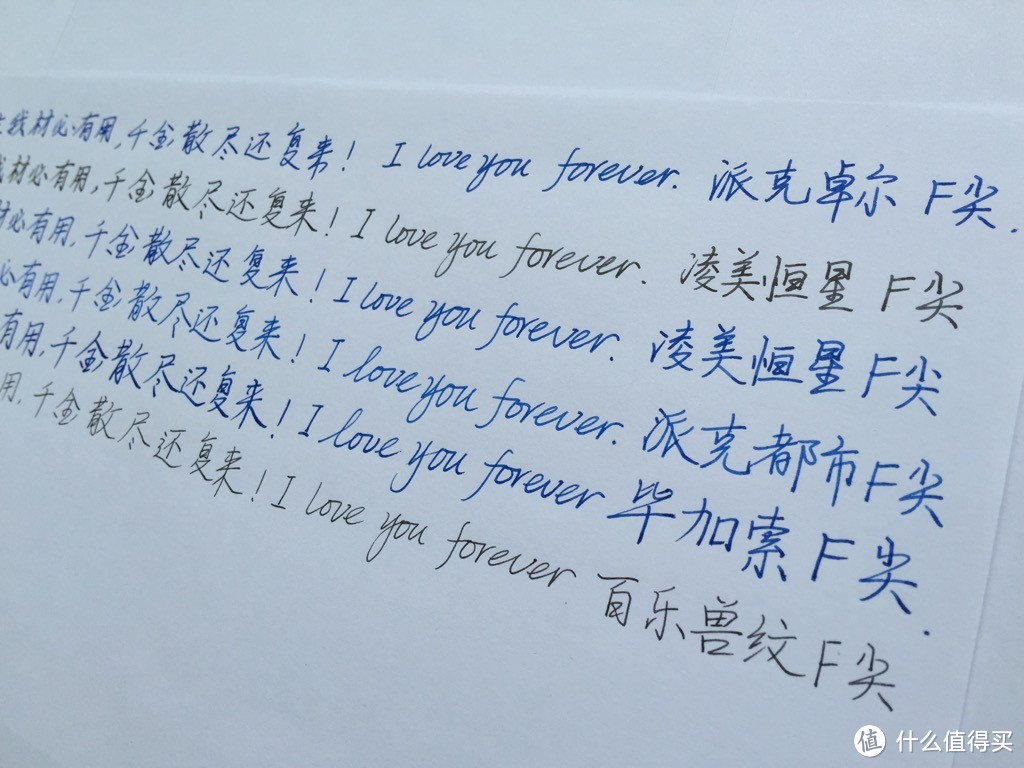 我材必有用,千金散尽还复来! I love you forever. 派克卓尔 F尖.
材必有用,千金散尽还复来! I love you forever. 凌美恒星 F尖
必有用,千金散尽还复来! I love you forever. 凌美恒星 F尖
有用,千金散尽还复来! I love you forever. 派克都市 F尖
有用,千金散尽还复来! I love you forever 毕加索 F尖.
用,千金散尽还复来! I love you forever 百乐兽纹 F尖
值 什么值得买